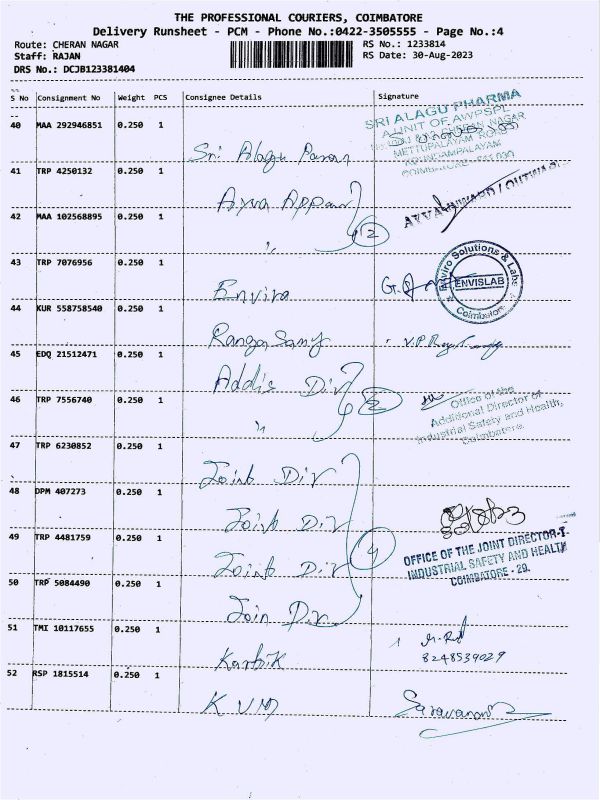 THE PROFESSIONAL COURIERS, COIMBATORE
Delivery Runsheet - PCM - Phone No.:0422-3505555 - Page No.:4
Route: CHERAN NAGAR RS No.: 1233814
Staff: RAJAN RS Date: 30-Aug-2023
DRS No.: DCJB123381404
S No Consignment No Weight PCS Consignee Details Signature
40 MAA 292946851 0.250 1
Sri Alagu
SRI ALAGU PHARMA
A UNIT OF AWPSPL
METTUPALAYAM ROAD
KOUNDAMPALAYAM
41 TRP 4250132 0.250 1
42 MAA 102568895 0.250 1
2
43 TRP 7076956 0.250 1
Enviro
Enviro Solutions & Labs
ENVISLAB
Coimbatore
44 KUR 558758540 0.250 1
Ranga Samy
45 EDQ 21512471 0.250 1
Addis Dir
46 TRP 7556740 0.250 1
2
Office of the
Additional Director of
Industrial Safety and Health,
Coimbatore.
47 TRP 6230852 0.250 1
Joint Dir
48 DPM 407273 0.250 1
Joint Dir
49 TRP 4481759 0.250 1
Joint Dir
4
OFFICE OF THE JOINT DIRECTOR-I
INDUSTRIAL SAFETY AND HEALTH
COIMBATORE - 29.
50 TRP 5084490 0.250 1
Join Dir
51 TMI 10117655 0.250 1
Kartik
8248539029
52 RSP 1815514 0.250 1
KVM